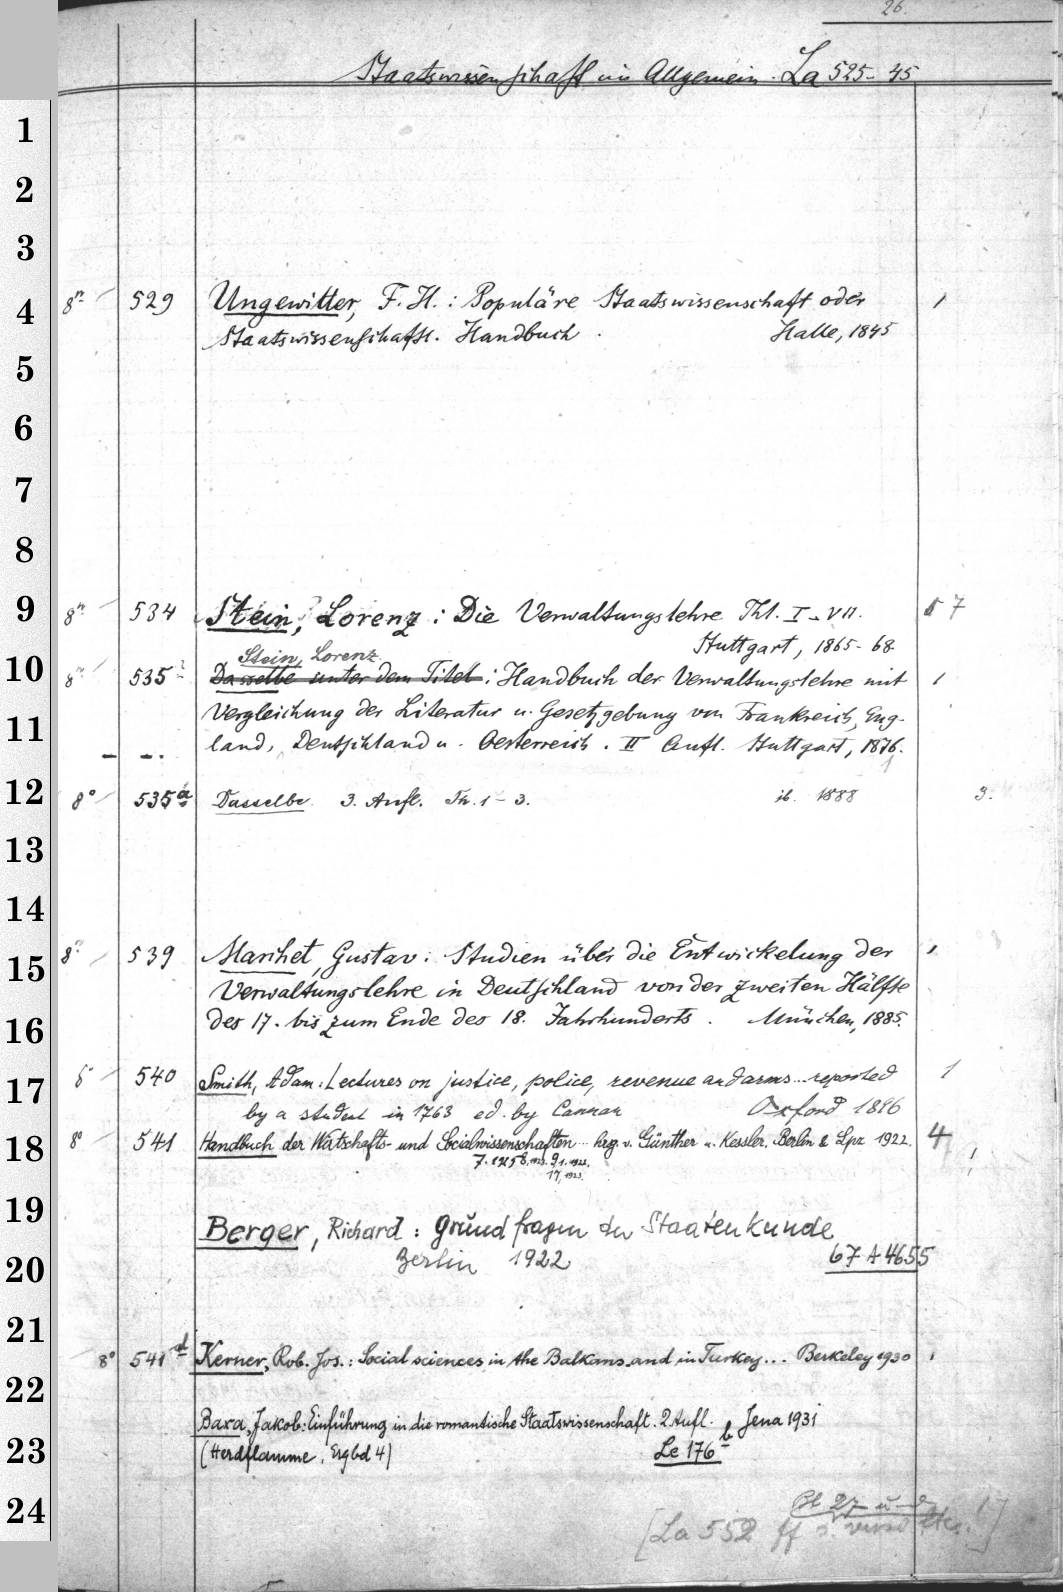 26.
Staatswissenschaft im Allgemein. La 525-45
1
2
3
4 8° 529 Ungewitter, F. H.: Populäre Staatswissenschaft oder 1
Staatswissenschaftl. Handbuch Halle, 1845
5
6
7
8
9 8° 534 Stein, Lorenz: Die Verwaltungslehre Thl. I-VII. 7
Stuttgart, 1865-68
Stein, Lorenz
10 8° 535 Dasselbe unter dem Titel: Handbuch der Verwaltungslehre mit 1
11 Vergleichung der Literatur u. Gesetzgebung von Frankreich, Eng-
land, Deutschland u. Oesterreich. II Aufl. Stuttgart, 1876.
12 8° 535a Dasselbe 3. Aufl. Th. 1-3. ib. 1888 3.
13
14
15 8° 539 Marchet, Gustav: Studien über die Entwickelung der 1
Verwaltungslehre in Deutschland von der zweiten Hälfte
16 des 17. bis zum Ende des 18. Jahrhunderts. München, 1885.
17 8° 540 Smith, Adam: Lectures on justice, police, revenue and arms... reported 1
by a student in 1763 ed. by Cannan Oxford 1896
18 8° 541 Handbuch der Wirtschafts- und Socialwissenschaften... hrg. v. Günther u. Kessler. Berlin & Lpz 1922. 4
19
Berger, Richard: Grundfragen der Staatenkunde
20 Berlin 1922 67 A 4655
21
8° 541d Kerner, Rob. Jos.: Social sciences in the Balkans and in Turkey... Berkeley 1930 1
22
Baxa, Jakob: Einführung in die romantische Staatswissenschaft. 2. Aufl. Jena 1931
23 (Herdflamme, Ergbd 4) Le 176b
24 Bl 27 u.
[La 552 ff s. verso